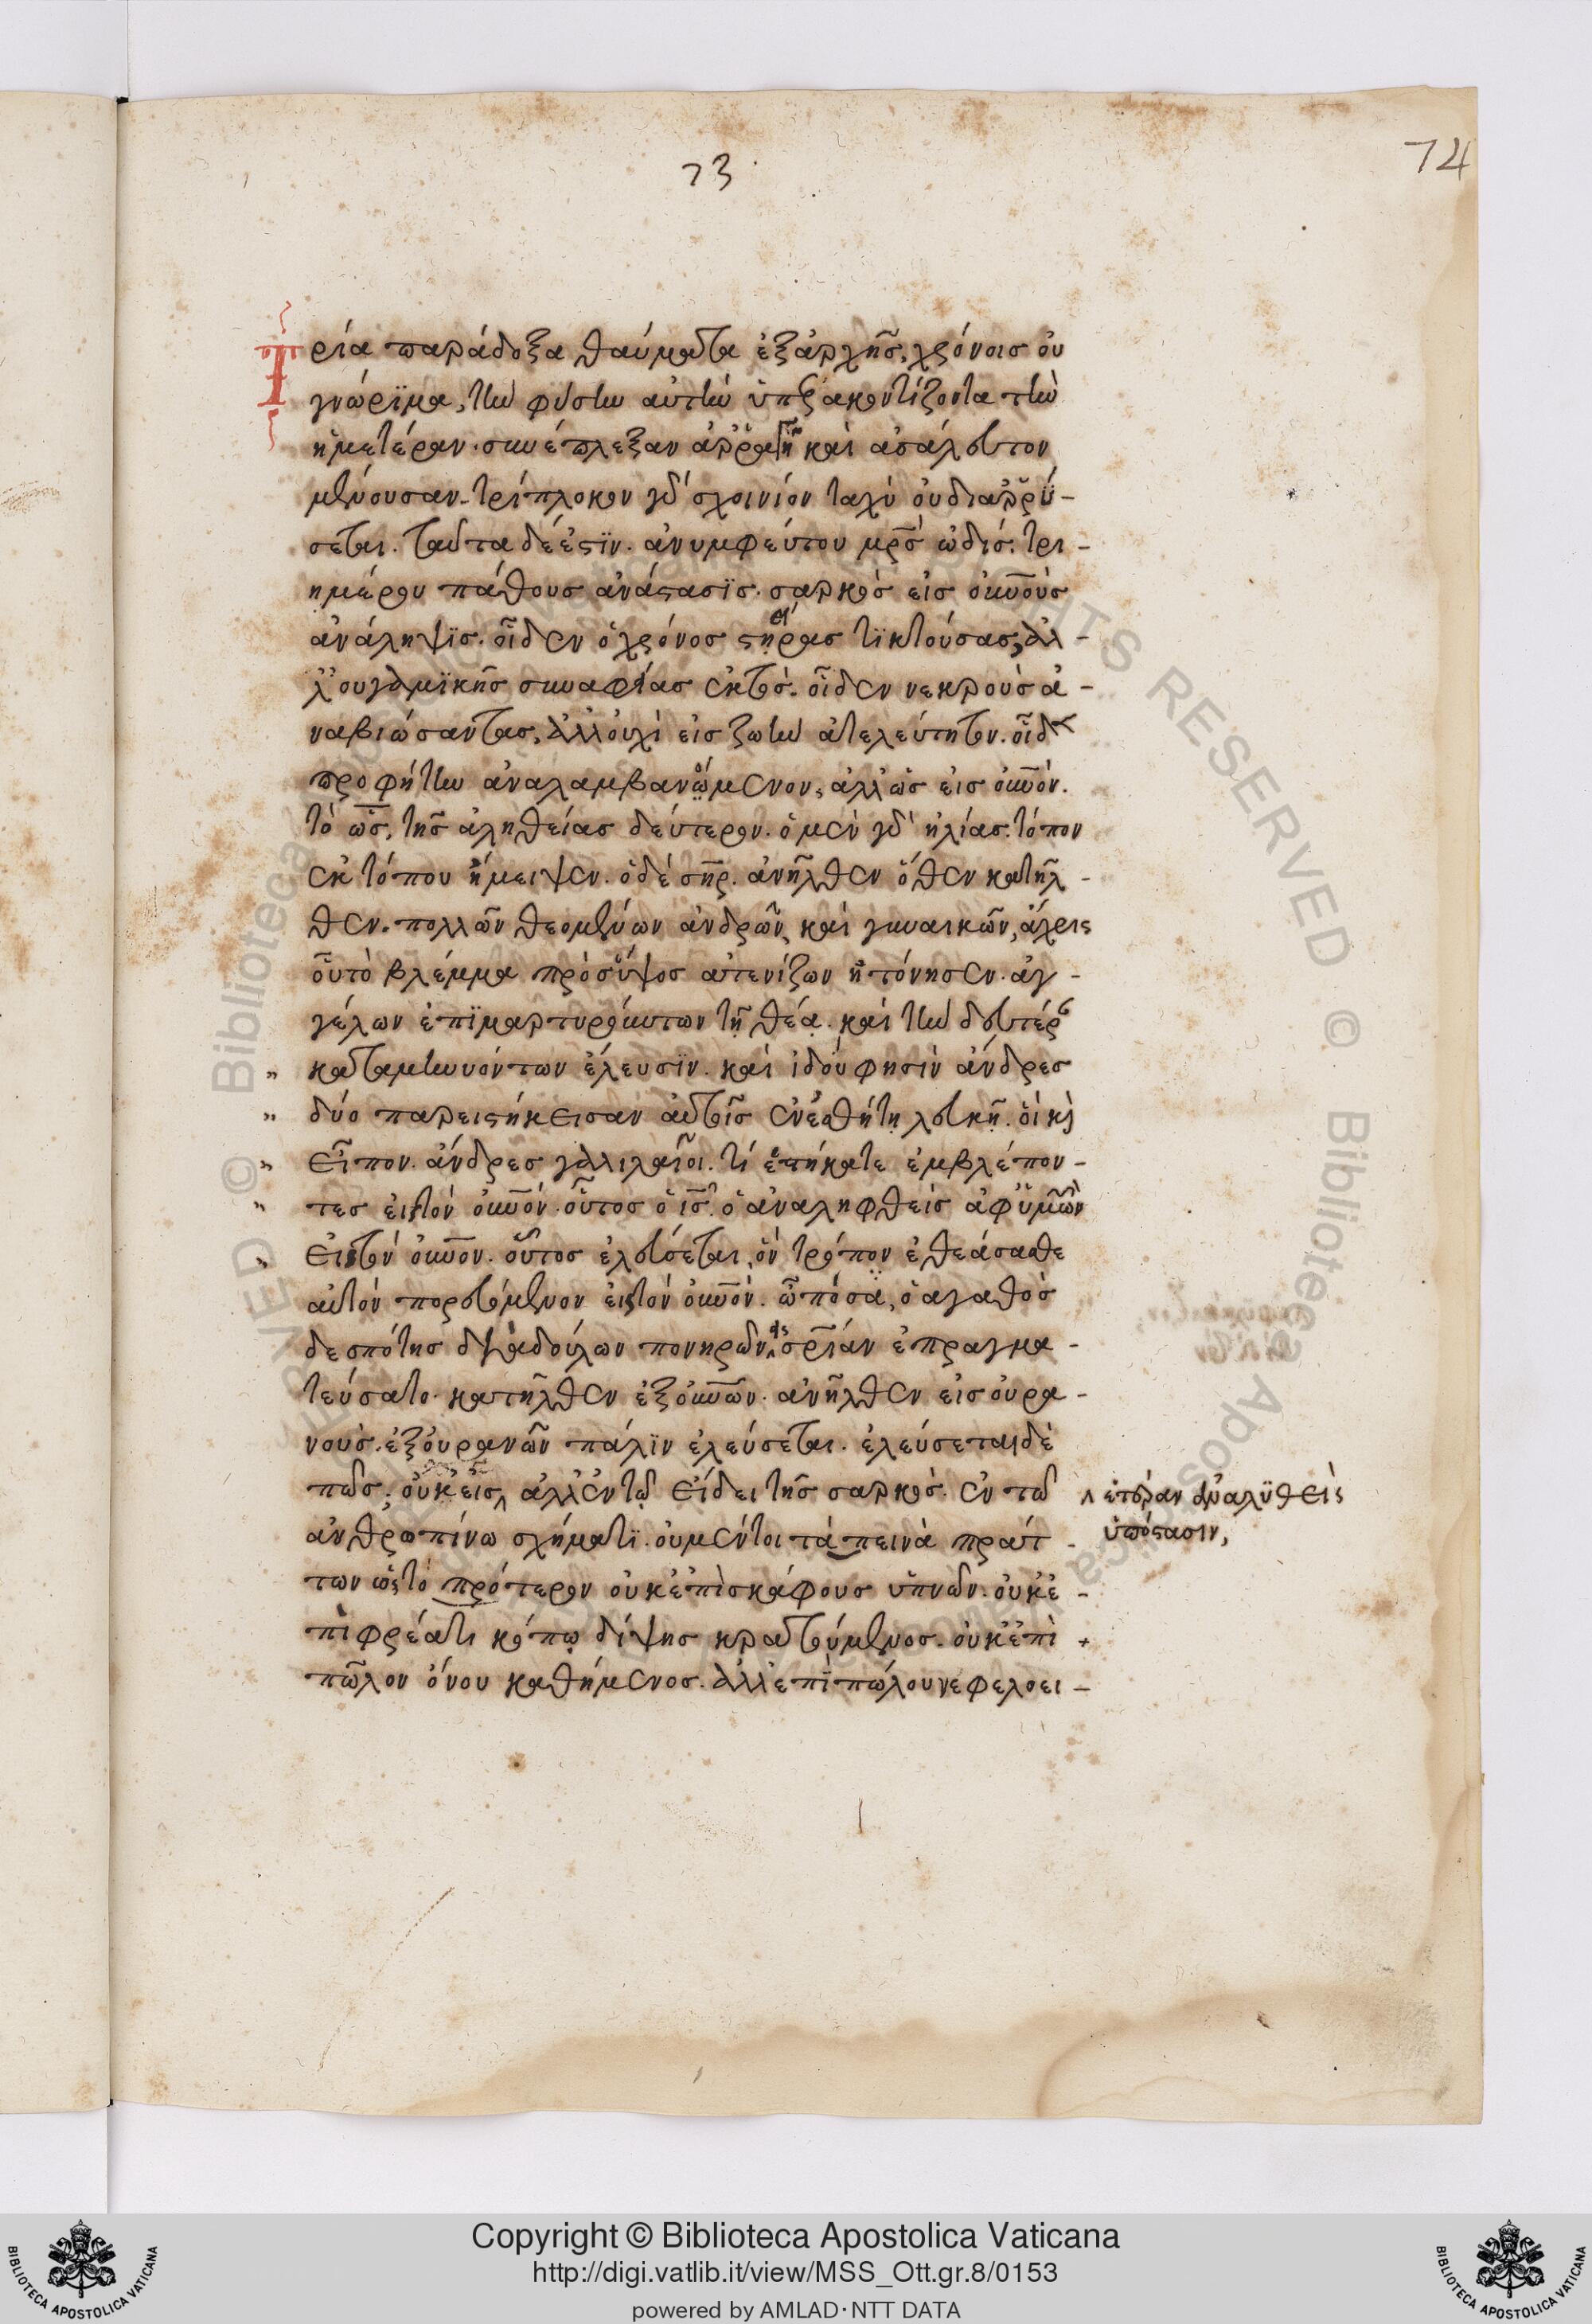 73
74
Τρία παράδοξα θαύματα ἐξαρχῆς, χρόνοις οὐ
γνώρϊμα, τὴν φύσιν αὐτὴν ὑπερακοντίζοντα τὴν
ἡμετέραν. συνέπλεξαν ἀρραγῆ καὶ ἀσάλευτον
μένουσαν. τρίπλοκον γὰρ σχοινίον ταχὺ οὐ διαρρϋ-
σεται. ταῦτα δέ ἐστϊν. ἀνυμφεύτου μρς ὠδίς. τρι-
ημέρου πάθους ἀνάστασϊς. σαρκὸς εἰς οὐνοὺς
ἀνάληψϊς. οἶδεν ὁ χρόνος στείρας τϊκτούσας, ἀλ-
λ' οὐ γαμϊκῆς συναφείας ἐκτός. οἶδεν νεκροὺς ἀ-
ναβιώσαντας, ἀλλ' οὐχὶ εἰς ζωὴν ἀτελεύτητον. οἶδε
προφήτην ἀναλαμβανόμενον, ἀλλ' ὡς εἰς οὐνόν.
τὸ ὡς, τῆς ἀληθείας δεύτερον. ὁ μὲν γὰρ ἡλίας. τόπον
ἐκ τόπου ἤμειψεν. ὁ δὲ σηρ. ἀνῆλθεν ὅθεν κατῆλ-
θεν. πολλῶν θεομένων ἀνδρῶν, καὶ γυναικῶν, ἄχρις
οὗ τὸ βλέμμα πρὸς ὕψος ἀτενίζων ἠτόνησεν. ἀγ-
γέλων ἐπϊμαρτυρούντων τῇ θέᾳ. καὶ τὴν δευτέραν
καταμηνυόντων ἔλευσϊν. καὶ ἰδού φησιν ἄνδρες
δύο παρειστήκεισαν αὐτοῖς ἐν ἐσθήτῃ λευκῇ. οἳ κὶ
εἶπον. ἄνδρες γαλιλαῖοι. τί ἑστήκατε ἐμβλέπον-
τες εἰς τὸν οὐνόν. οὗτος ὁ ις. ὁ ἀναληφθεὶς ἀφ' ὑμῶν
εἰς τὸν οὐνον. οὕτος ἐλεύσεται, ὃν τρόπον ἐθεάσασθε
αὐτὸν πορευόμενον εἰς τὸν οὐνόν. ὢ πόσα, ὁ ἀγαθὸς
δεσπότης διὰ δούλων πονηρῶν σρίαν ἐπραγμα-
τεύσατο. κατῆλθεν ἐξ οὐνῶν. ἀνῆλθεν εἰς οὐρα-
νούς. ἐξ οὐρανῶν πάλϊν ἐλεύσεται. ἐλεύσεται δὲ
πῶς. οὐκ εἰς ἀλλ' ἐν τῷ εἴδει τῆς σαρκός. ἐν τῶ
ἑτέραν ἀναλϋθεὶς
ὑπόστασιν,
ἀνθρωπίνω σχήματϊ. οὐ μέντοι ταπεινὰ πράτ-
των ὡς τὸ πρότερον οὐκ ἐπὶ σκάφους ὑπνῶν. οὐκ ἐ-
πὶ φρέατι κόπῳ δίψης κρατούμενος. οὐκ ἐπὶ
πῶλον ὄνου καθήμενος. ἀλλ' ἐπὶ πώλου νεφελοει-
Copyright © Biblioteca Apostolica Vaticana
http://digi.vatlib.it/view/MSS_Ott.gr.8/0153
powered by AMLAD·NTT DATA